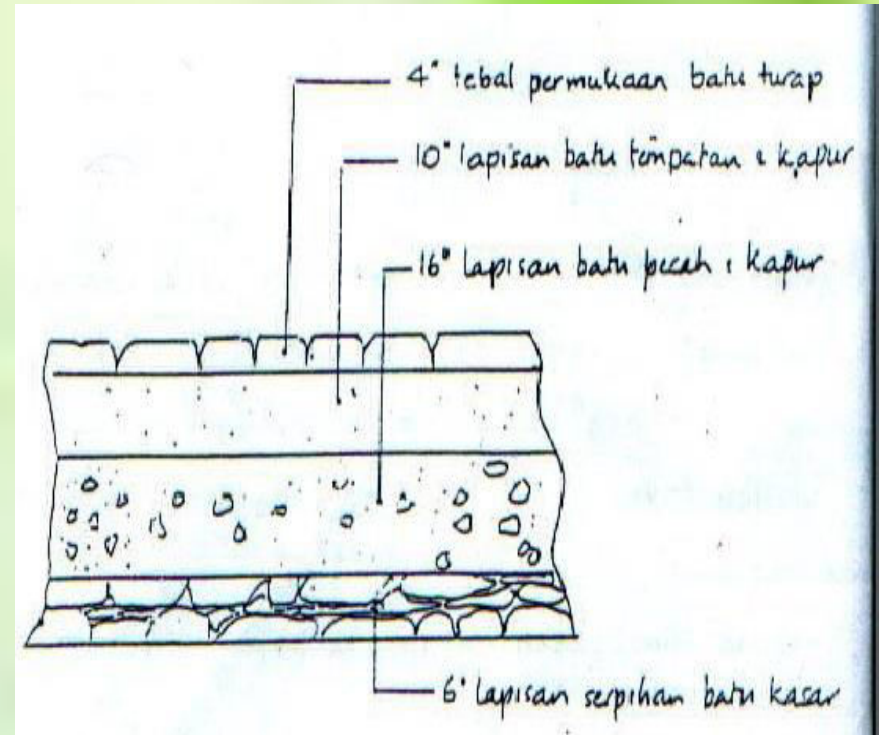 4" tebal permukaan batu turap
10" lapisan batu tempatan & kapur
16" lapisan batu pecah & kapur
6" lapisan serpihan batu kasar